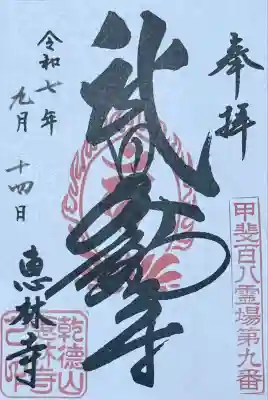 奉拝
甲斐百八霊場第九番
武
令和七年
九月十四日
恵林寺
乾徳山